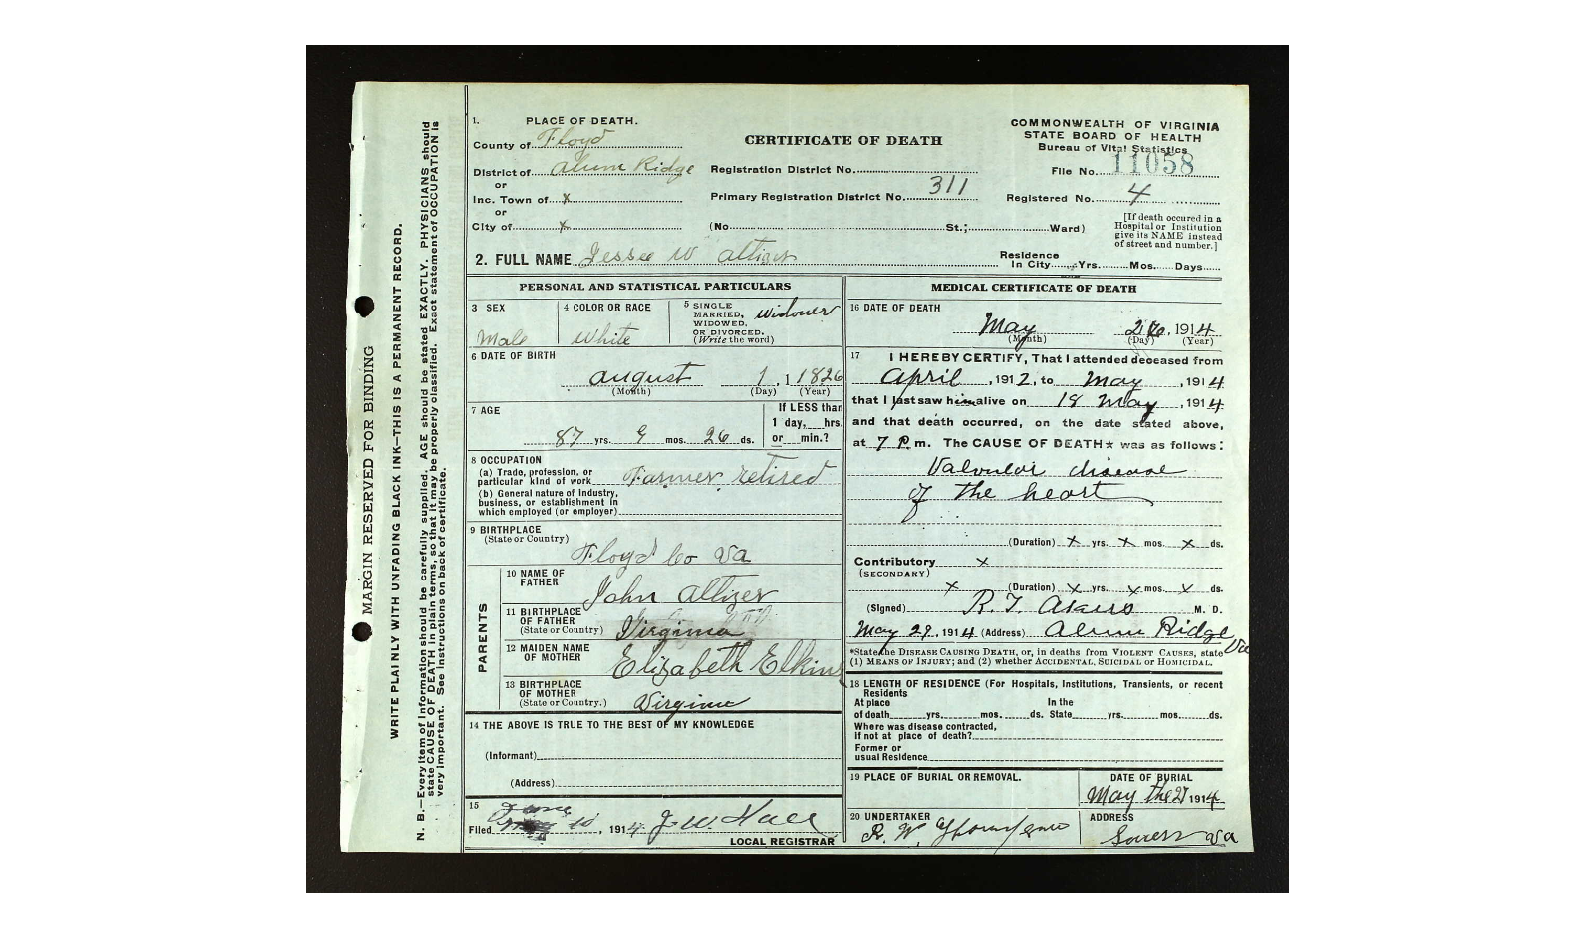 MARGIN RESERVED FOR BINDING
WRITE PLAINLY WITH UNFADING BLACK INK—THIS IS A PERMANENT RECORD.
N. B.—Every item of information should be carefully supplied. AGE should be stated EXACTLY. PHYSICIANS should
state CAUSE OF DEATH in plain terms, so that it may be properly classified. Exact statement of OCCUPATION is
very important. See instructions on back of certificate.
1. PLACE OF DEATH.
County of Floyd
District of Alum Ridge
or
Inc. Town of x
or
City of x
CERTIFICATE OF DEATH
Registration District No.
Primary Registration District No. 311
(No. St.; Ward)
COMMONWEALTH OF VIRGINIA
STATE BOARD OF HEALTH
Bureau of Vital Statistics
File No. 11058
Registered No. 4
[If death occured in a
Hospital or Institution
give its NAME instead
of street and number.]
2. FULL NAME Jesse W Altizer
Residence
In City Yrs. Mos. Days
PERSONAL AND STATISTICAL PARTICULARS
3 SEX
Male
4 COLOR OR RACE
White
5 SINGLE
MARRIED,
WIDOWED,
OR DIVORCED.
(Write the word)
widower
6 DATE OF BIRTH
august 1, 1826
(Month) (Day) (Year)
7 AGE
87 yrs. 9 mos. 26 ds.
If LESS than
1 day, hrs.
or min.?
8 OCCUPATION
(a) Trade, profession, or
particular kind of work Farmer retired
(b) General nature of Industry,
business, or establishment in
which employed (or employer)
9 BIRTHPLACE
(State or Country)
Floyd Co Va
PARENTS
10 NAME OF
FATHER
John Altizer
11 BIRTHPLACE
OF FATHER
(State or Country) Virginia
12 MAIDEN NAME
OF MOTHER
Elizabeth Elkins
13 BIRTHPLACE
OF MOTHER
(State or Country.) Virginia
14 THE ABOVE IS TRLE TO THE BEST OF MY KNOWLEDGE
(Informant)
(Address)
15
Filed June 10, 1914 J. W. Hall
LOCAL REGISTRAR
MEDICAL CERTIFICATE OF DEATH
16 DATE OF DEATH
May 26, 1914
(Month) (Day) (Year)
17 I HEREBY CERTIFY, That I attended deceased from
April, 1912, to May, 1914
that I last saw him alive on 18 May, 1914
and that death occurred, on the date stated above,
at 7 P. m. The CAUSE OF DEATH* was as follows:
Valvular disease
of the heart
(Duration) x yrs. x mos. x ds.
Contributory x
(SECONDARY)
x (Duration) x yrs. x mos. x ds.
(Signed) R. T. Akers M. D.
May 29, 1914 (Address) Alum Ridge Va
*State the DISEASE CAUSING DEATH, or, in deaths from VIOLENT CAUSES, state
(1) MEANS OF INJURY; and (2) whether ACCIDENTAL, SUICIDAL or HOMICIDAL.
18 LENGTH OF RESIDENCE (For Hospitals, Institutions, Transients, or recent
Residents
At place In the
of death yrs. mos. ds. State yrs. mos. ds.
Where was disease contracted,
if not at place of death?
Former or
usual Residence
19 PLACE OF BURIAL OR REMOVAL.
DATE OF BURIAL
May the 27 1914
20 UNDERTAKER
R. W.
ADDRESS
Sowers Va